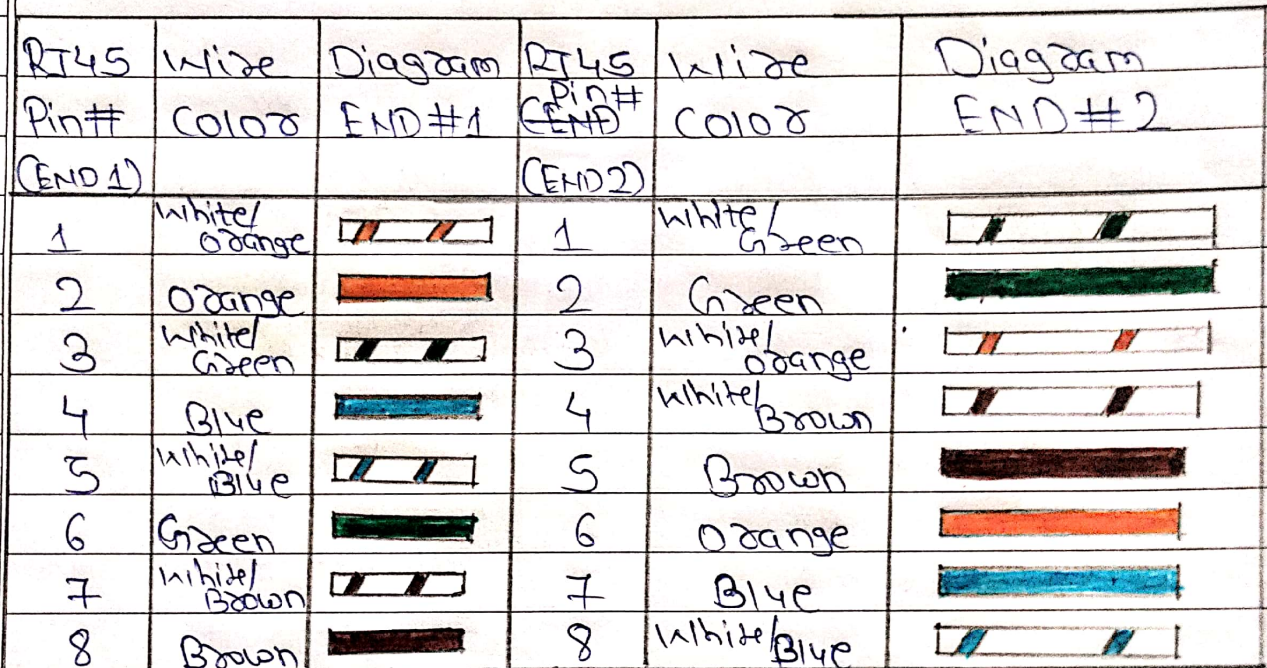 RJ45 Wire Diagram RJ45 Wire Diagram
Pin# Color END#1 Pin# Color END#2
(END 1) (END 2)
1 White/Orange 1 White/Green
2 Orange 2 Green
3 White/Green 3 White/Orange
4 Blue 4 White/Brown
5 White/Blue 5 Brown
6 Green 6 Orange
7 White/Brown 7 Blue
8 Brown 8 White/Blue